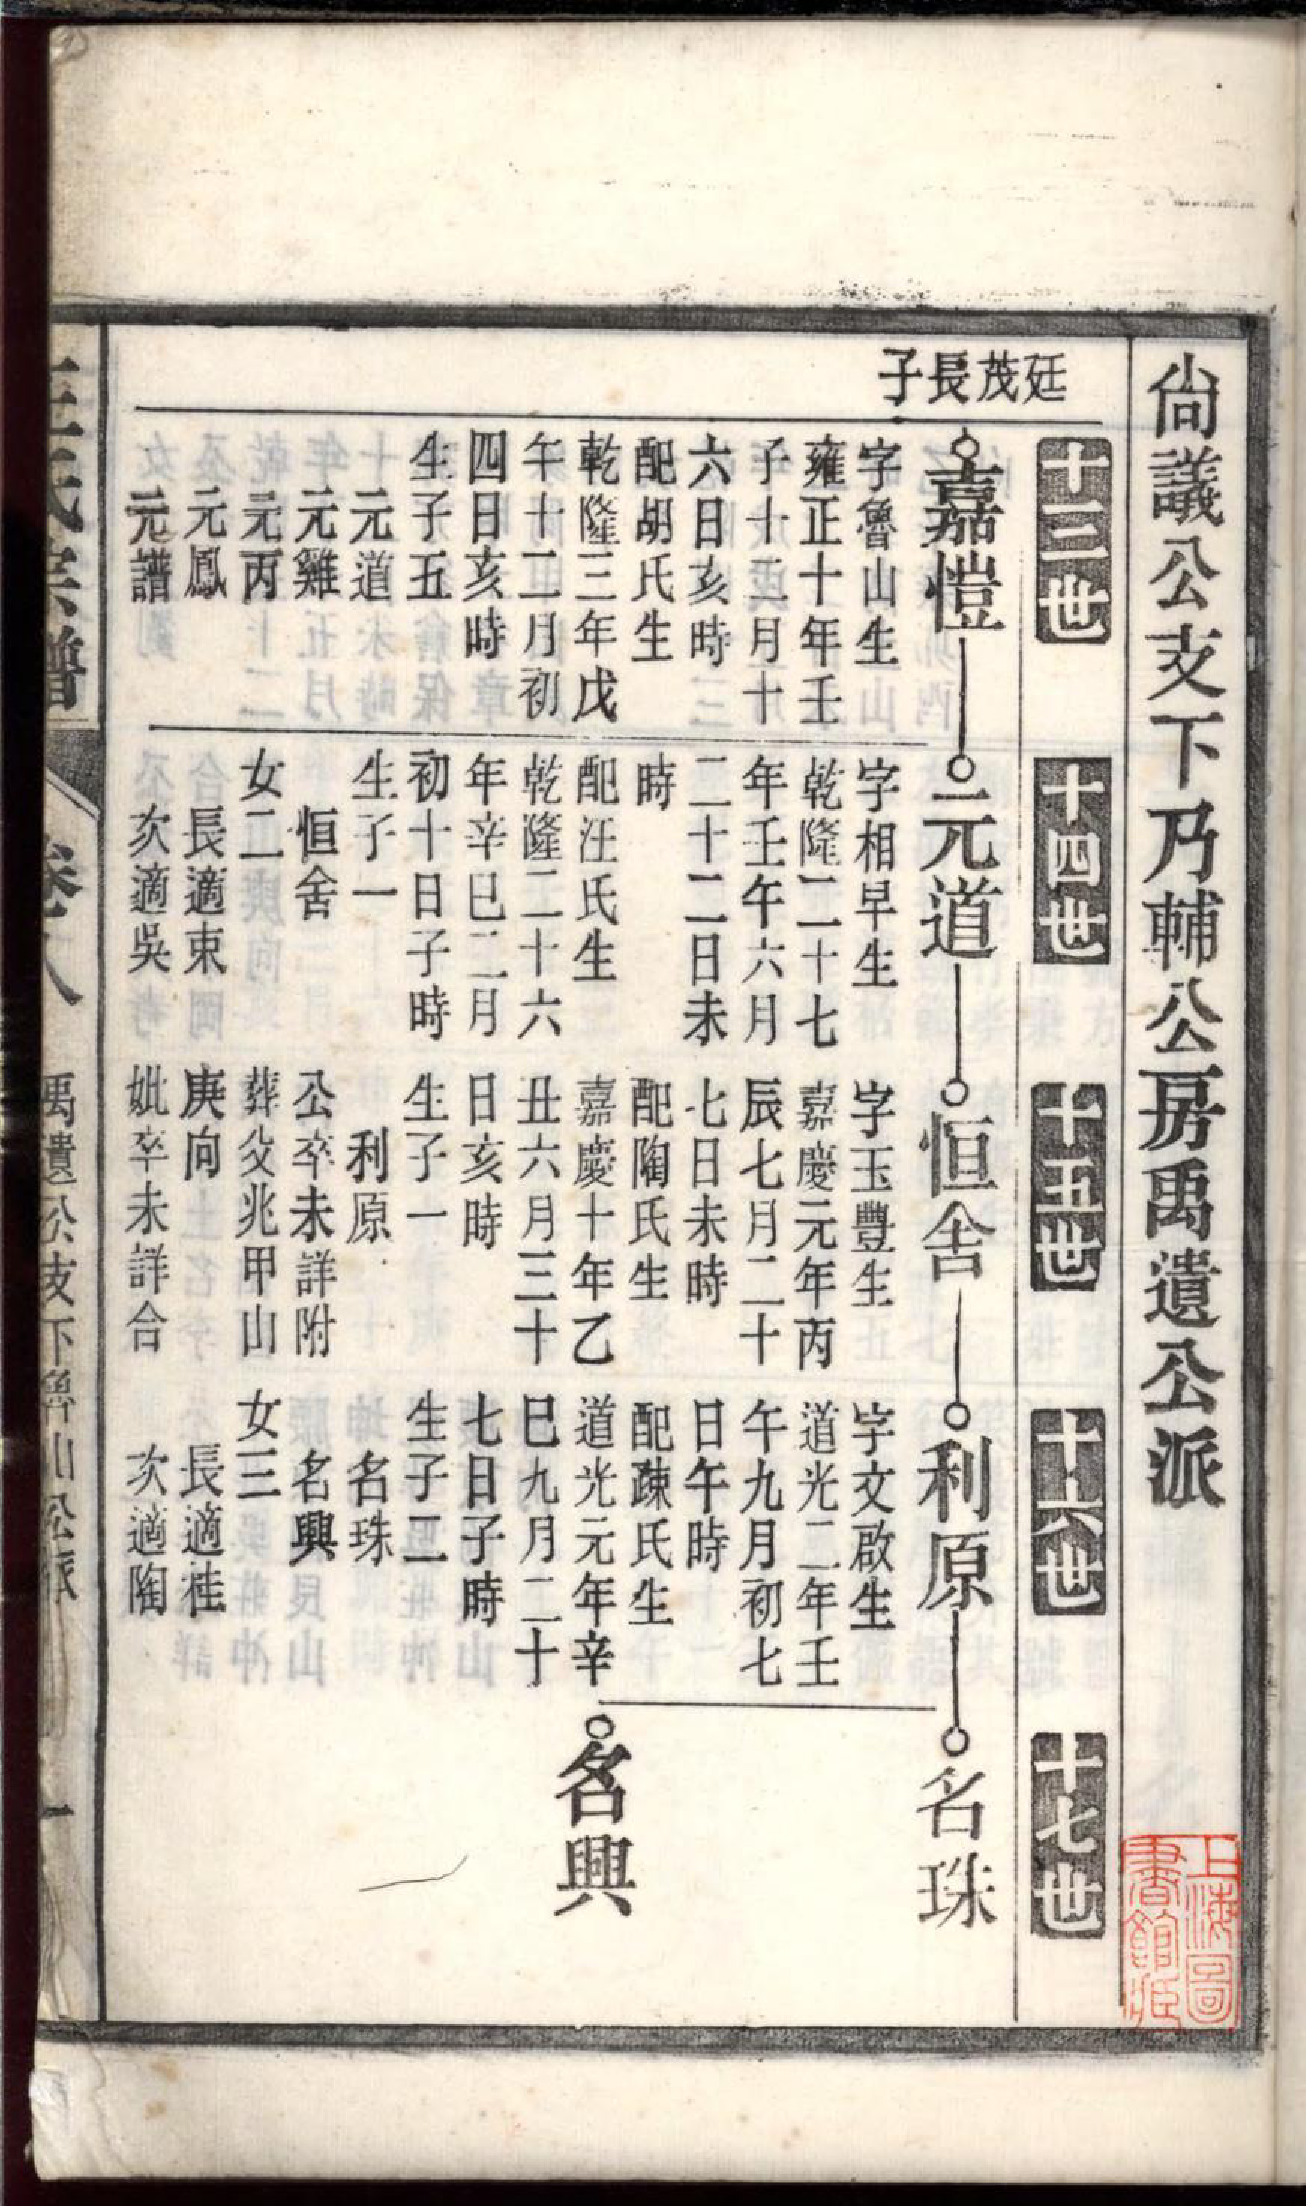 尚議公支下乃輔公房禹遺公派
十三世
十四世
十五世
十六世
十七世
廷茂長子
嘉愷
字魯山生
雍正十年壬
子十二月十
六日亥時
配胡氏生
乾隆三年戊
午十二月初
四日亥時
生子五
元道
元雞
元丙
元鳳
元譜
元道
字相早生
乾隆二十七
年壬午六月
二十二日未
時
配汪氏生
乾隆二十六
年辛巳二月
初十日子時
生子一
恒舍
女二
長適東
次適吳
恒舍
字玉豐生
嘉慶元年丙
辰七月二十
七日未時
配陶氏生
嘉慶十年乙
丑六月三十
日亥時
生子一
利原
公卒未詳附
葬父兆甲山
庚向
妣卒未詳合
利原
字文啟生
道光二年壬
午九月初七
日午時
配疎氏生
道光元年辛
巳九月二十
七日子時
生子二
名珠
名興
女三
長適桂
次適陶
名珠
名興
王氏宗譜
卷八
禹遺公支下魯山公派
一
上海圖
書館藏